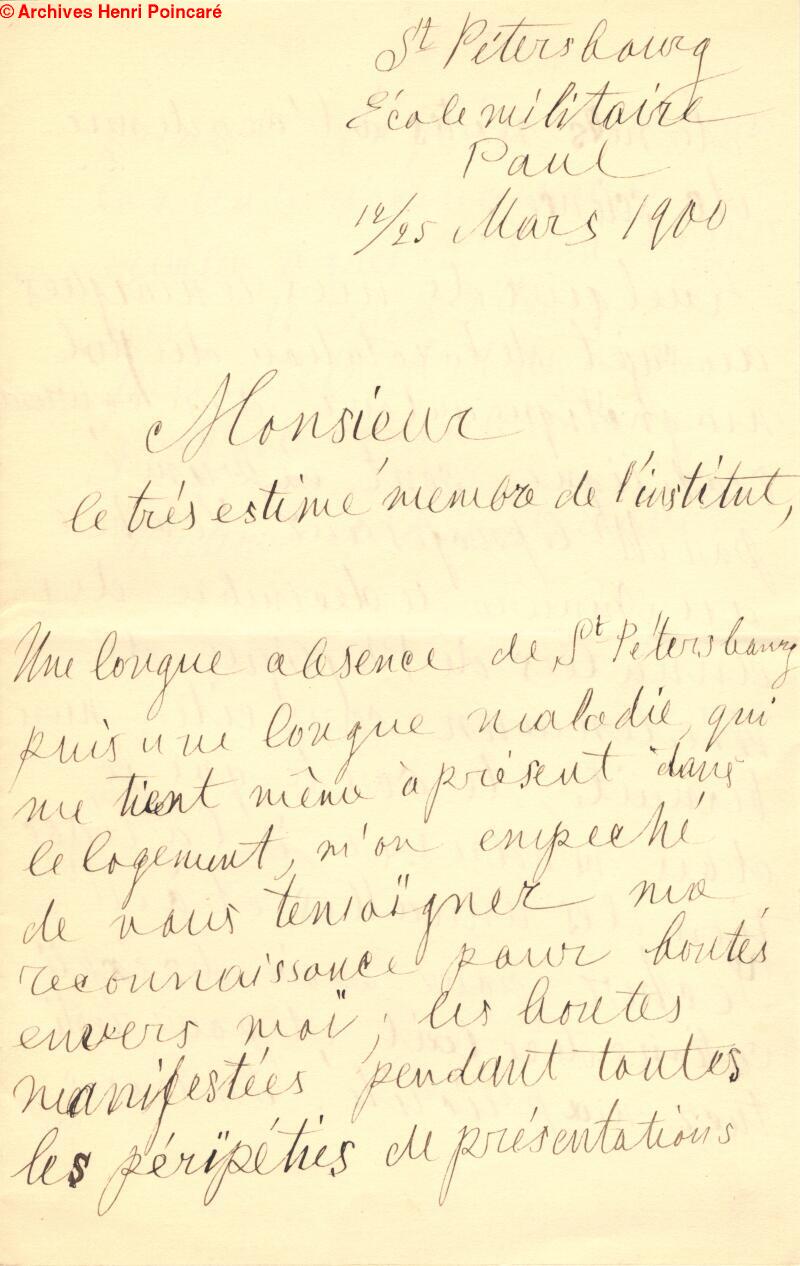 © Archives Henri Poincaré
St Pétersbourg
École militaire
Paul
12/25 Mars 1900
Monsieur
le trés estimé membre de l'institut,
Une longue absence de St Pétersbourg
puis une longue maladie, qui
me tient même à présent dans
le logement, m'on empeché
de vous temoïgner ma
reconnaissance pour bontés
envers moï; les bontes
manifestées pendant toutes
les péripéties de présentations